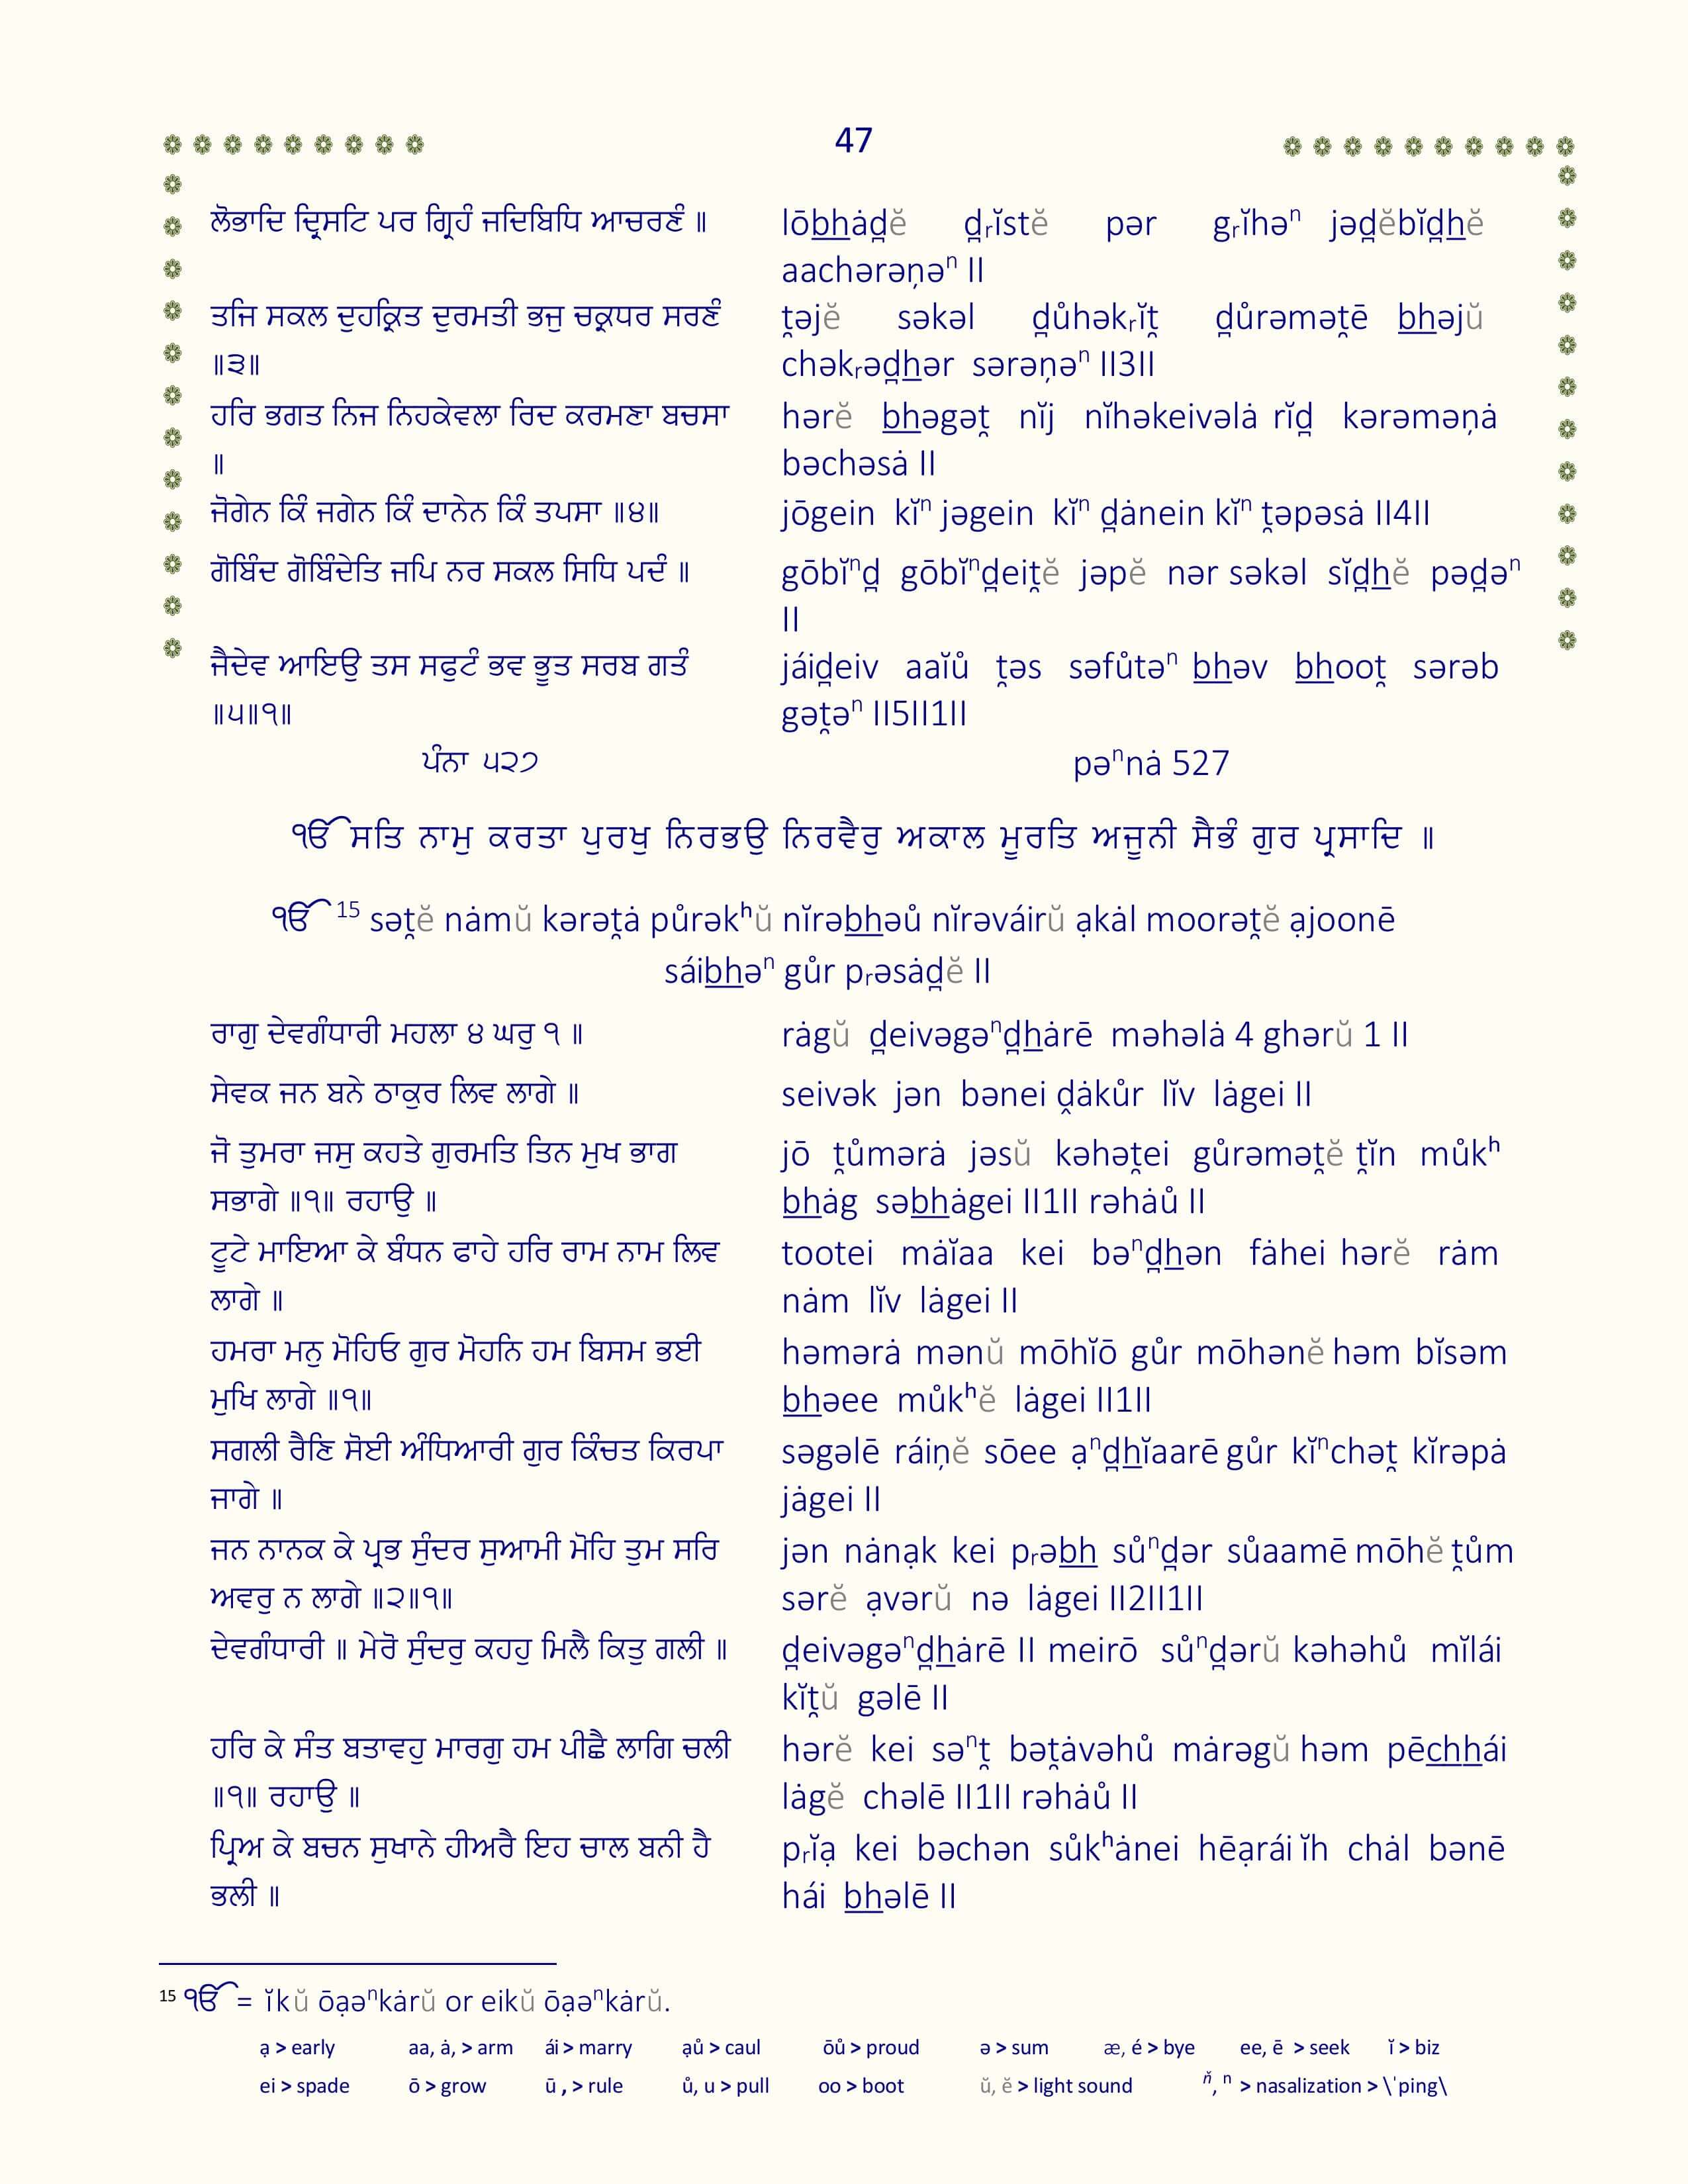 47
ਲੋਭਾਦਿ ਦ੍ਰਿਸਟਿ ਪਰ ਗ੍ਰਿਹੰ ਜਦਿਬਿਧਿ ਆਚਰਣੰ ॥
lōbhȧd̪ĕ d̪ᵣĭstĕ pər gᵣĭhəⁿ jəd̪ĕbĭd̪hĕ
aachərəṇəⁿ II
ਤਜਿ ਸਕਲ ਦੁਹਕ੍ਰਿਤ ਦੁਰਮਤੀ ਭਜੁ ਚਕ੍ਰਧਰ ਸਰਣੰ
॥੩॥
t̪əjĕ səkəl d̪ůhəkᵣĭt̪ d̪ůrəmət̪ē bhəjŭ
chəkᵣəd̪hər sərəṇəⁿ II3II
ਹਰਿ ਭਗਤ ਨਿਜ ਨਿਹਕੇਵਲਾ ਰਿਦ ਕਰਮਣਾ ਬਚਸਾ
॥
hərĕ bhəgət̪ nĭj nĭhəkeivəlȧ rĭd̪ kərəməṇȧ
bəchəsȧ II
ਜੋਗੇਨ ਕਿੰ ਜਗੇਨ ਕਿੰ ਦਾਨੇਨ ਕਿੰ ਤਪਸਾ ॥੪॥
jōgein kĭⁿ jəgein kĭⁿ d̪ȧnein kĭⁿ t̪əpəsȧ II4II
ਗੋਬਿੰਦ ਗੋਬਿੰਦੇਤਿ ਜਪਿ ਨਰ ਸਕਲ ਸਿਧਿ ਪਦੰ ॥
gōbĭⁿd̪ gōbĭⁿd̪eit̪ĕ jəpĕ nər səkəl sĭd̪hĕ pəd̪əⁿ
II
ਜੈਦੇਵ ਆਇਉ ਤਸ ਸਫੁਟੰ ਭਵ ਭੂਤ ਸਰਬ ਗਤੰ
॥੫॥੧॥
jáid̪eiv aaĭů t̪əs səfůtəⁿ bhəv bhoot̪ sərəb
gət̪əⁿ II5II1II
ਪੰਨਾ ੫੨੭
pəⁿnȧ 527
ੴ ਸਤਿ ਨਾਮੁ ਕਰਤਾ ਪੁਰਖੁ ਨਿਰਭਉ ਨਿਰਵੈਰੁ ਅਕਾਲ ਮੂਰਤਿ ਅਜੂਨੀ ਸੈਭੰ ਗੁਰ ਪ੍ਰਸਾਦਿ ॥
ੴ 15 sət̪ĕ nȧmŭ kərət̪ȧ půrəkʰŭ nĭrəbhəů nĭrəváirŭ ạkȧl moorət̪ĕ ạjoonē
sáibhəⁿ gůr pᵣəsȧd̪ĕ II
ਰਾਗੁ ਦੇਵਗੰਧਾਰੀ ਮਹਲਾ ੪ ਘਰੁ ੧ ॥
rȧgŭ d̪eivəgəⁿd̪hȧrē məhəlȧ 4 ghərŭ 1 II
ਸੇਵਕ ਜਨ ਬਨੇ ਠਾਕੁਰ ਲਿਵ ਲਾਗੇ ॥
seivək jən bənei d̯ȧkůr lĭv lȧgei II
ਜੋ ਤੁਮਰਾ ਜਸੁ ਕਹਤੇ ਗੁਰਮਤਿ ਤਿਨ ਮੁਖ ਭਾਗ
ਸਭਾਗੇ ॥੧॥ ਰਹਾਉ ॥
jō t̪ůmərȧ jəsŭ kəhət̪ei gůrəmət̪ĕ t̪ĭn můkʰ
bhȧg səbhȧgei II1II rəhȧů II
ਟੂਟੇ ਮਾਇਆ ਕੇ ਬੰਧਨ ਫਾਹੇ ਹਰਿ ਰਾਮ ਨਾਮ ਲਿਵ
ਲਾਗੇ ॥
tootei mȧĭaa kei bəⁿd̪hən fȧhei hərĕ rȧm
nȧm lĭv lȧgei II
ਹਮਰਾ ਮਨੁ ਮੋਹਿਓ ਗੁਰ ਮੋਹਨਿ ਹਮ ਬਿਸਮ ਭਈ
ਮੁਖਿ ਲਾਗੇ ॥੧॥
həmərȧ mənŭ mōhĭō gůr mōhənĕ həm bĭsəm
bhəee můkʰĕ lȧgei II1II
ਸਗਲੀ ਰੈਣਿ ਸੋਈ ਅੰਧਿਆਰੀ ਗੁਰ ਕਿੰਚਤ ਕਿਰਪਾ
ਜਾਗੇ ॥
səgəlē ráiṇĕ sōee ạⁿd̪hĭaarē gůr kĭⁿchət̪ kĭrəpȧ
jȧgei II
ਜਨ ਨਾਨਕ ਕੇ ਪ੍ਰਭ ਸੁੰਦਰ ਸੁਆਮੀ ਮੋਹਿ ਤੁਮ ਸਰਿ
ਅਵਰੁ ਨ ਲਾਗੇ ॥੨॥੧॥
jən nȧnạk kei pᵣəbh sůⁿd̪ər sůaamē mōhĕ t̪ům
sərĕ ạvərŭ nə lȧgei II2II1II
ਦੇਵਗੰਧਾਰੀ ॥ ਮੇਰੋ ਸੁੰਦਰੁ ਕਹਹੁ ਮਿਲੈ ਕਿਤੁ ਗਲੀ ॥
d̪eivəgəⁿd̪hȧrē II meirō sůⁿd̪ərŭ kəhəhů mĭlái
kĭt̪ŭ gəlē II
ਹਰਿ ਕੇ ਸੰਤ ਬਤਾਵਹੁ ਮਾਰਗੁ ਹਮ ਪੀਛੈ ਲਾਗਿ ਚਲੀ
॥੧॥ ਰਹਾਉ ॥
hərĕ kei səⁿt̪ bət̪ȧvəhů mȧrəgŭ həm pēchhái
lȧgĕ chəlē II1II rəhȧů II
ਪ੍ਰਿਅ ਕੇ ਬਚਨ ਸੁਖਾਨੇ ਹੀਅਰੈ ਇਹ ਚਾਲ ਬਨੀ ਹੈ
ਭਲੀ ॥
pᵣĭạ kei bəchən sůkʰȧnei hēạrái ĭh chȧl bənē
hái bhəlē II
15 ੴ = ĭkŭ ōạəⁿkȧrŭ or eikŭ ōạəⁿkȧrŭ.
ạ > early aa, ȧ, > arm ái > marry ạů > caul ōů > proud ə > sum æ, é > bye ee, ē > seek ĭ > biz
ei > spade ō > grow ū , > rule ů, u > pull oo > boot ŭ, ĕ > light sound ň, ⁿ > nasalization > \ˈping\